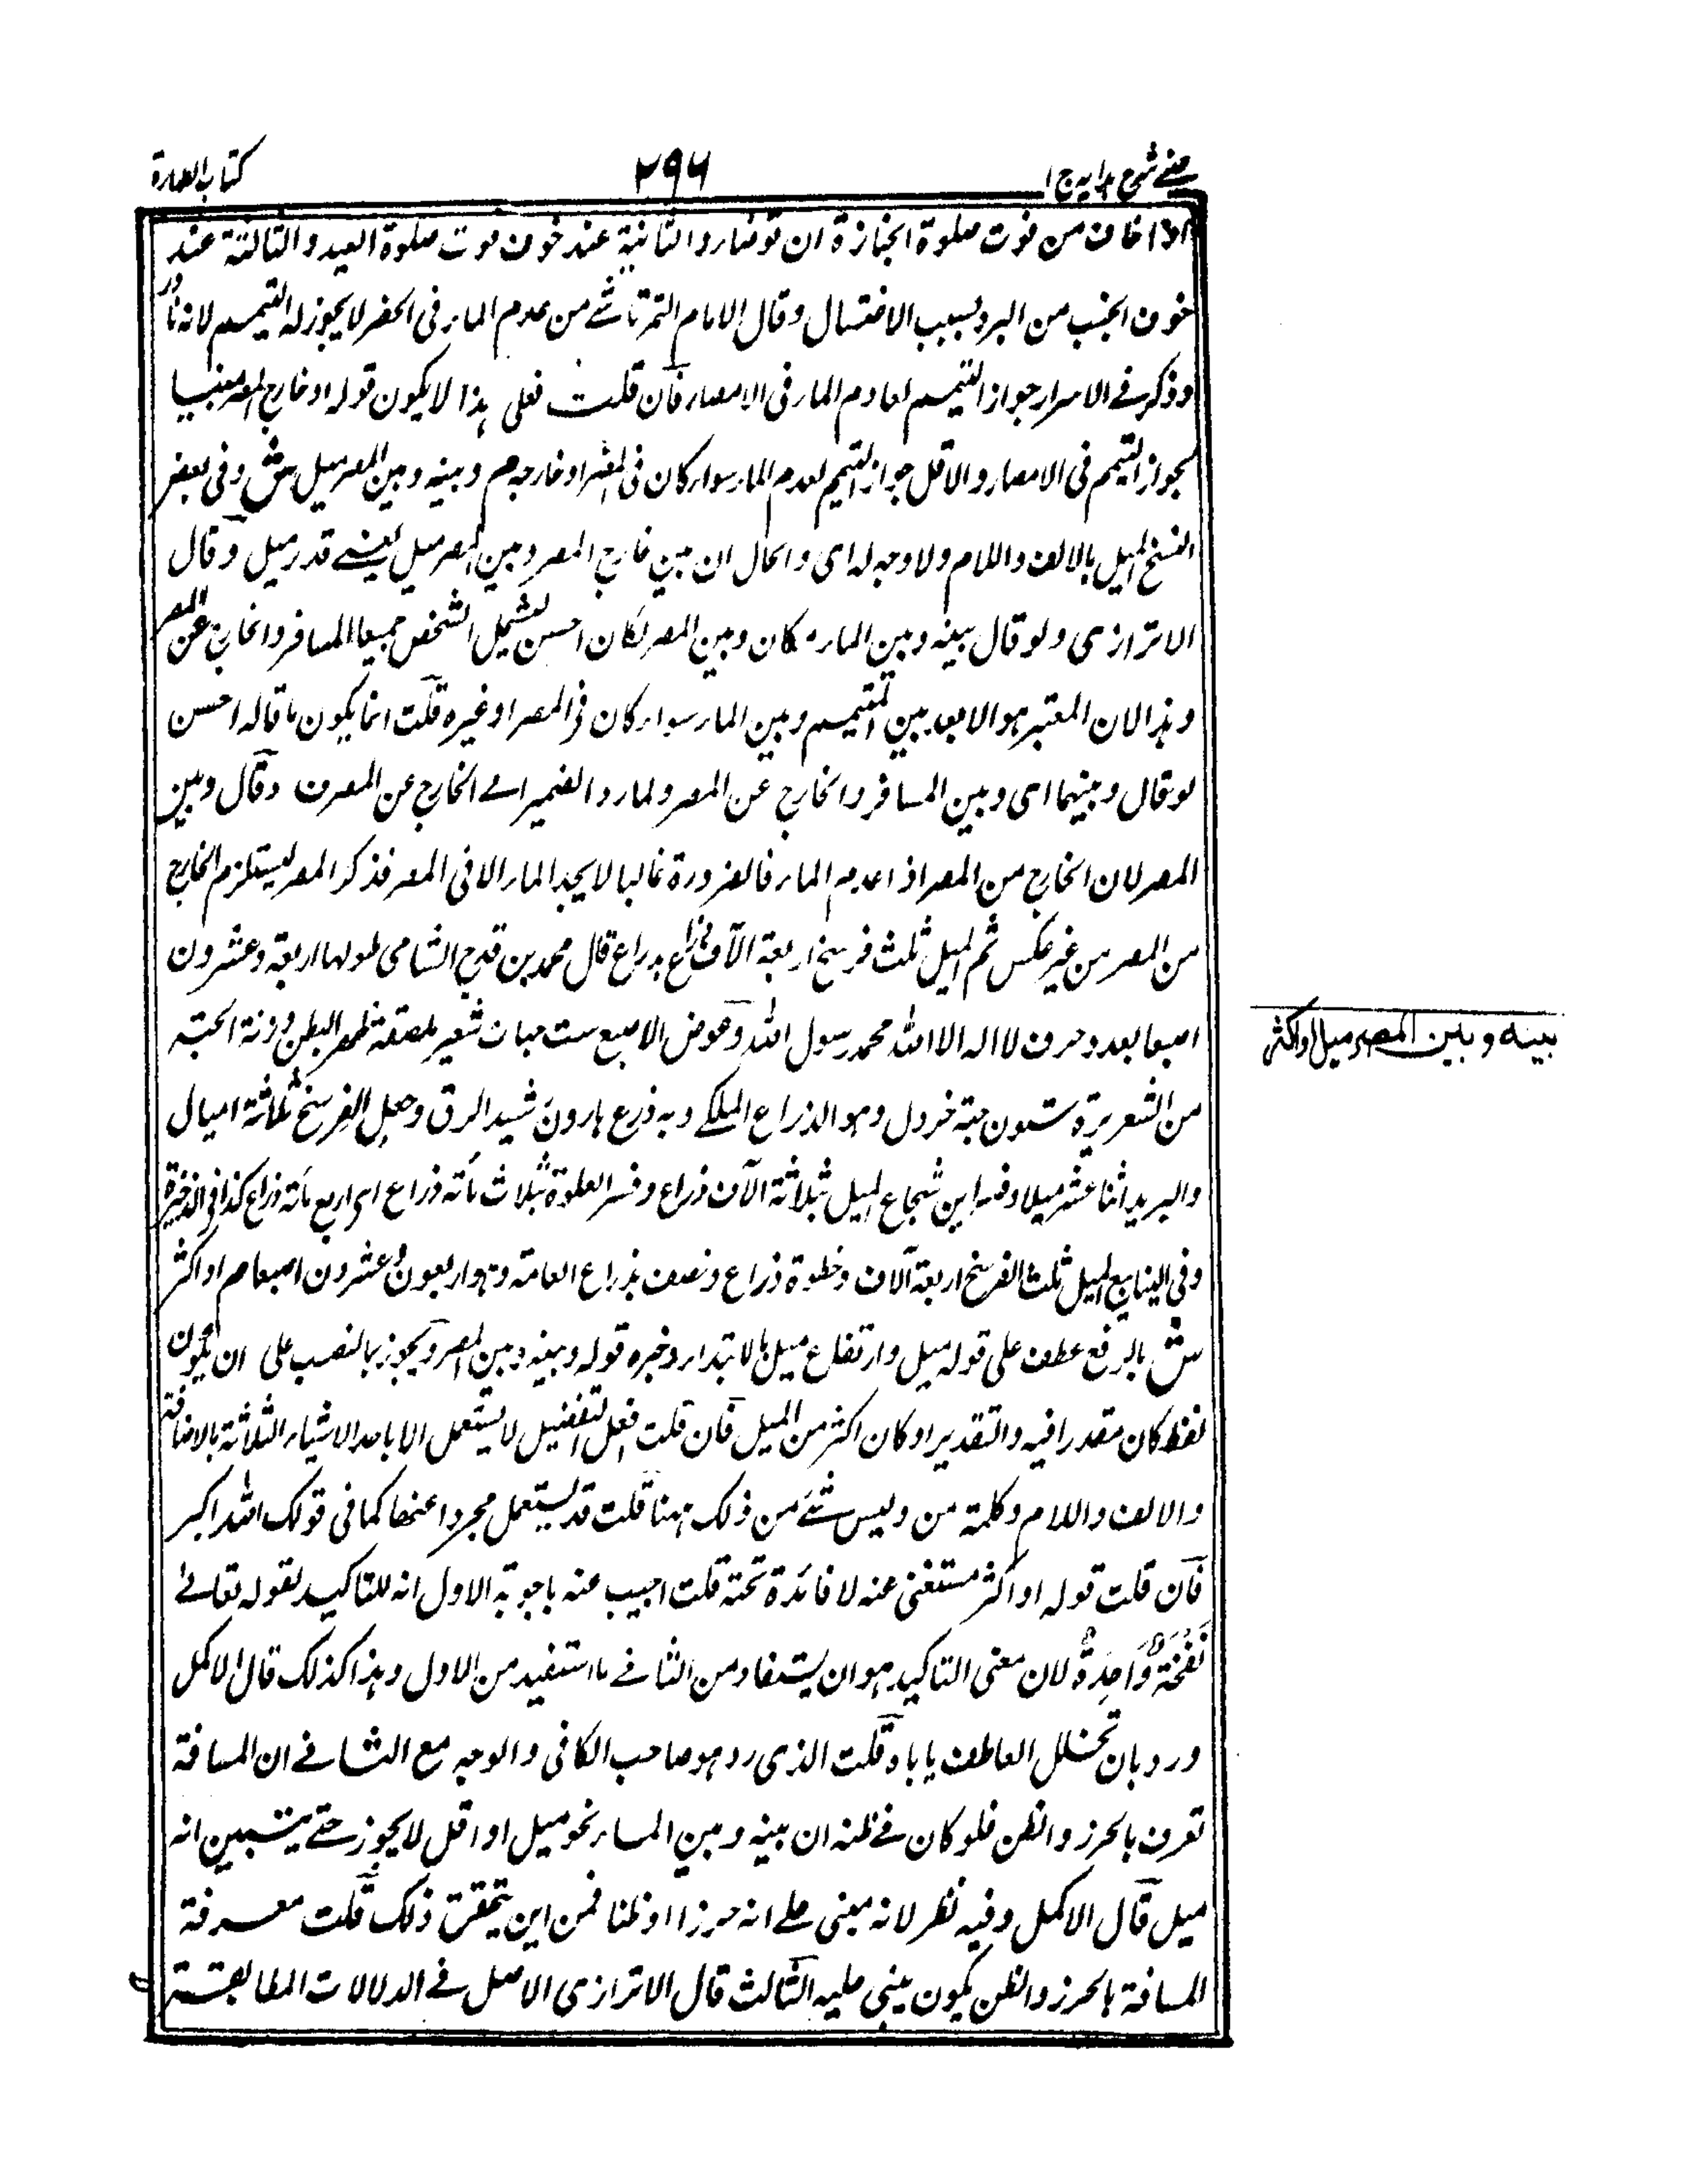 عينے شرح ہدایہ ج ۱
۲۹۶
كتاب الطهارة
اذا خاف من فوت صلوة الجنازة ان توضأ والثانية عند خوف فوت صلوة العيد والثالثة عند
خوف الجنب من البرد بسبب الاغتسال وقال الامام التمرتاشے من عدم الماء فى الحضر لا يجوز له التيمم لانه نادر
وذكر فے الاسرار جواز التيمم لعادم الماء فى الامصار فان قلت فعلى هذا لا يكون قوله او خارج المصر منبيا
لجواز التيمم فى الامصار والاقل جواز التيمم لعدم الماء سواء كان فى المصر او خارجه م وبينه وبين المصر ميل ش وفى بعض
النسخ الميل بالالف واللام ولا وجه له اى والحال ان بين خارج المصر وبين المصر ميل يعنے قدر ميل وقال
الاترازى ولو قال بينه وبين الماء مكان وبين المصر لكان احسن لتشمل الشخص جميعا المسافر والخارج عن المصر
وهذا لان المعتبر هو الابعد بين المتيمم وبين الماء سواء كان فى المصر او غيره قلت انما يكون ما قاله احسن
لو قال وبينهما اى وبين المسافر والخارج عن المصر ولما رد الضمير الے الخارج عن المصر ف وقال وبين
المصر لان الخارج من المصر اذا عدم الماء فالضرورة غالبا لا يجد الماء الا فى المصر فذكر المصر ليستلزم الخارج
من المصر من غير عكس ثم الميل ثلث فرسخ اربعة آلاف ذراع بذراع قال محمد بن فرج الشامى طولها اربعة وعشرون
اصبعا بعدد حرف لا اله الا الله محمد رسول الله وعرض الاصبع ست حبات شعير ملصقة ظهر البطن وزنة الحبة
من الشعيرة ستون حبة خردل وهو الذراع الملكے وبه ذرع هارون رشيد الرق وجعل الفرسخ ثلاثة اميال
والبريد اثنا عشر ميلا وفسر ابن شجاع الميل بثلاثة آلاف ذراع وفسر الغلوة بثلاث مائة ذراع اى اربع مائة ذراع كذا فى الذخيرة
وفى الينابيع الميل ثلث الفرسخ اربعة آلاف وخطوة ذراع ونصف بذراع العامة وهو اربعون وعشرون اصبعا م او اكثر
ش بالرفع عطف على قوله ميل وارتفاع ميل بالابتداء وخبره قوله وبينه وبين المصر ويجوز بالنصب على ان يكون
لفظ كان مقدرا فيه والتقدير او كان اكثر من الميل فان قلت افعل التفضيل لا يستعمل الا باحد الاشياء الثلاثة بالاضافة
والالف واللام وكلمة من وليس شئے من ذلك ههنا قلت قد يستعمل مجردا عنها كما فى قولك الله اكبر
فان قلت قوله او اكثر مستغنى عنه لا فائدة تحته قلت اجيب عنه باجوبة الاول انه للتاكيد لقوله تعالے
نَفْخَةٌ وَّاحِدَةٌ لان معنى التاكيد هو ان يستفاد من الثانے ما استفيد من الاول وهذا كذلك قال الاكمل
ورد بان تخلل العاطف يأباه قلت الذى رد هو صاحب الكافى والوجه مع الثانے ان المسافة
تعرف بالحرز والظن فلو كان فے ظنه ان بينه وبين الماء نحو ميل او اقل لا يجوز حتے يتبين انه
ميل قال الاكمل وفيه نظر لانه مبنى علے انه حرزا او ظنا فمن اين يتحقق ذلك قلت معرفة
المسافة بالحرز والظن يكون يبنى عليه الثالث قال الاترازى الاصل فے الدلالات المطابقة
بينه وبين المصر ميل او اكثر